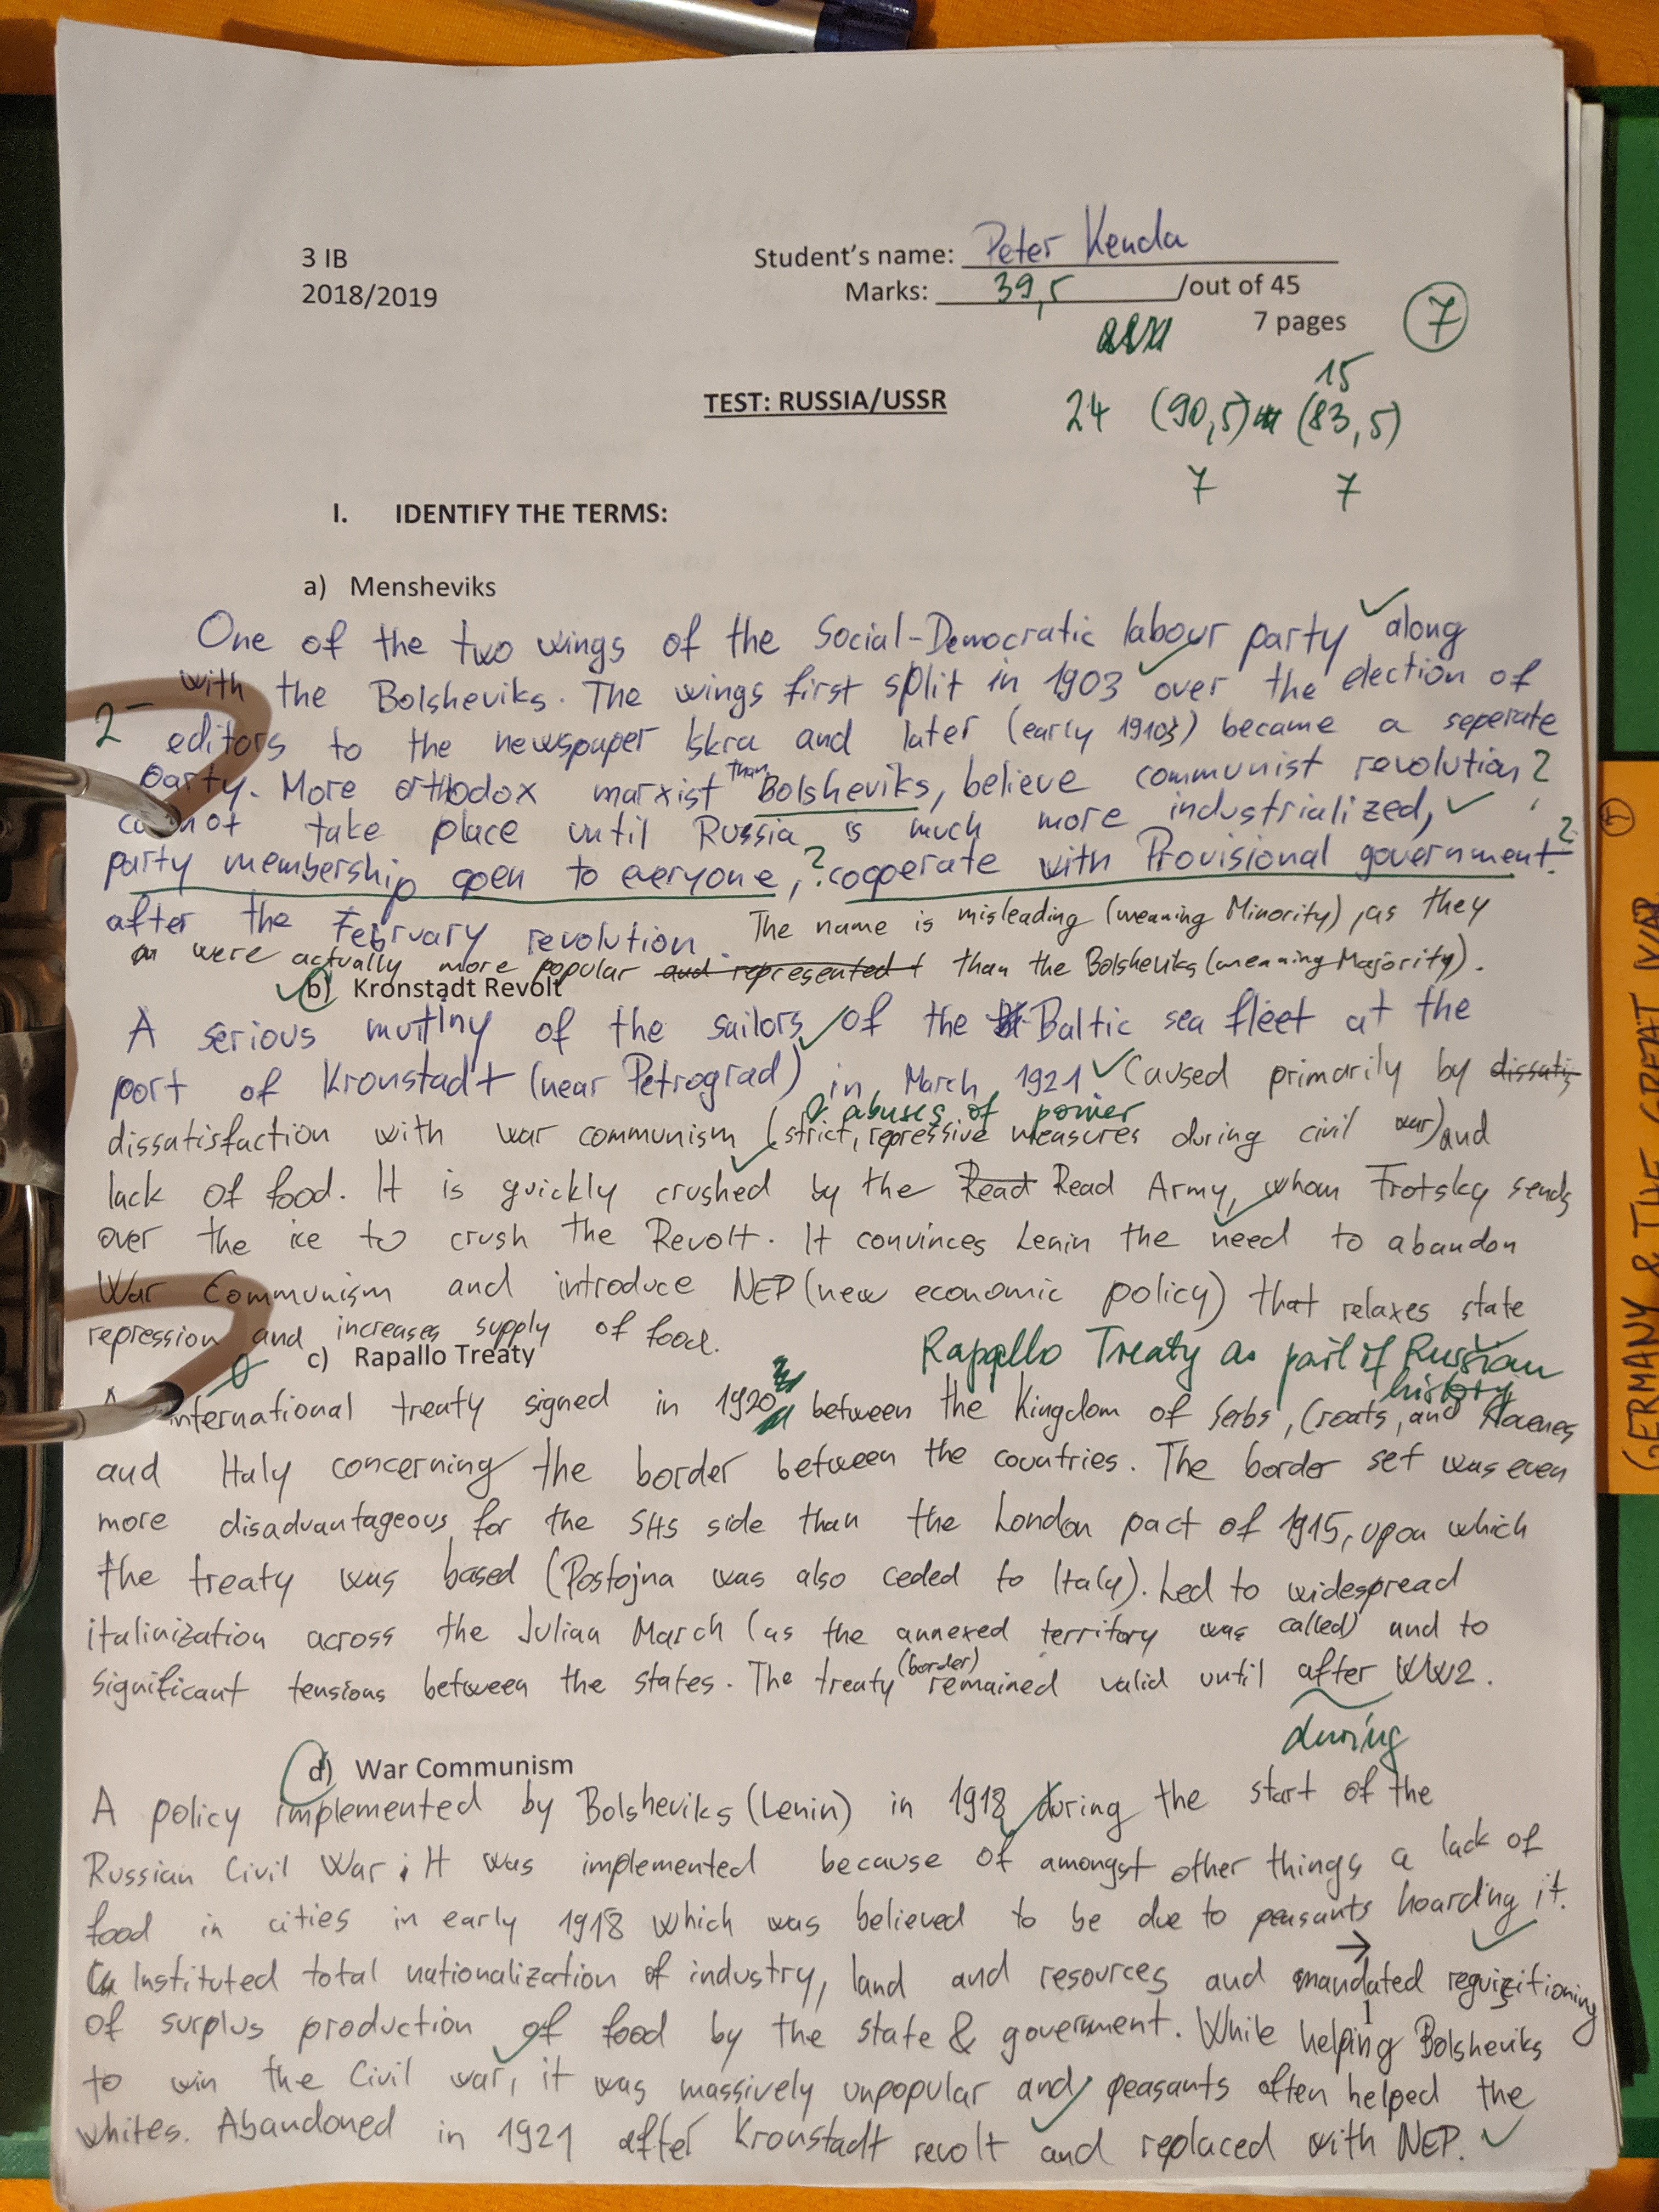 3 IB
Student's name: Peter Kenda
2018/2019
Marks: 39,5 /out of 45
7 pages
7
15
TEST: RUSSIA/USSR
24 (90,5) (83,5)
7 7
I. IDENTIFY THE TERMS:
a) Mensheviks
One of the two wings of the Social-Democratic labour party along
with the Bolsheviks. The wings first split in 1903 over the election of
2-
editors to the newspaper Iskra and later (early 1910s) became a seperate
party. More orthodox marxist than Bolsheviks, believe communist revolution ?
cannot take place until Russia is much more industrialized,
party membership open to everyone, ? cooperate with Provisional government ?
after the February revolution. The name is misleading (meaning Minority), as they
were actually more popular and represented than the Bolsheviks (meaning Majority).
b) Kronstadt Revolt
A serious mutiny of the sailors of the Baltic sea fleet at the
port of Kronstadt (near Petrograd) in March 1921 Caused primarily by dissatis
& abuses of power
dissatisfaction with war communism (strict, repressive measures during civil war) and
lack of food. It is quickly crushed by the Read Read Army, whom Trotsky sends
over the ice to crush the Revolt. It convinces Lenin the need to abandon
War Communism and introduce NEP (new economic policy) that relaxes state
repression and increases supply of food.
c) Rapallo Treaty
Rapallo Treaty as part of Russian
history
international treaty signed in 1920 between the Kingdom of Serbs, Croats, and Slovenes
and Italy concerning the border between the countries. The border set was even
more disadvantageous for the SHS side than the London pact of 1915, upon which
the treaty was based (Postojna was also ceded to Italy). Led to widespread
italinization across the Julian March (as the annexed territory was called) and to
significant tensions between the states. The treaty (border) remained valid until after WW2.
during
d) War Communism
A policy implemented by Bolsheviks (Lenin) in 1918 during the start of the
Russian Civil War. It was implemented because of amongst other things a lack of
food in cities in early 1918 which was believed to be due to peasants hoarding it.
Instituted total nationalization of industry, land and resources and mandated requisitioning
of surplus production of food by the state & government. While helping Bolsheviks
to win the Civil war, it was massively unpopular and peasants often helped the
whites. Abandoned in 1921 after Kronstadt revolt and replaced with NEP.
GERMANY & THE GREAT WAR